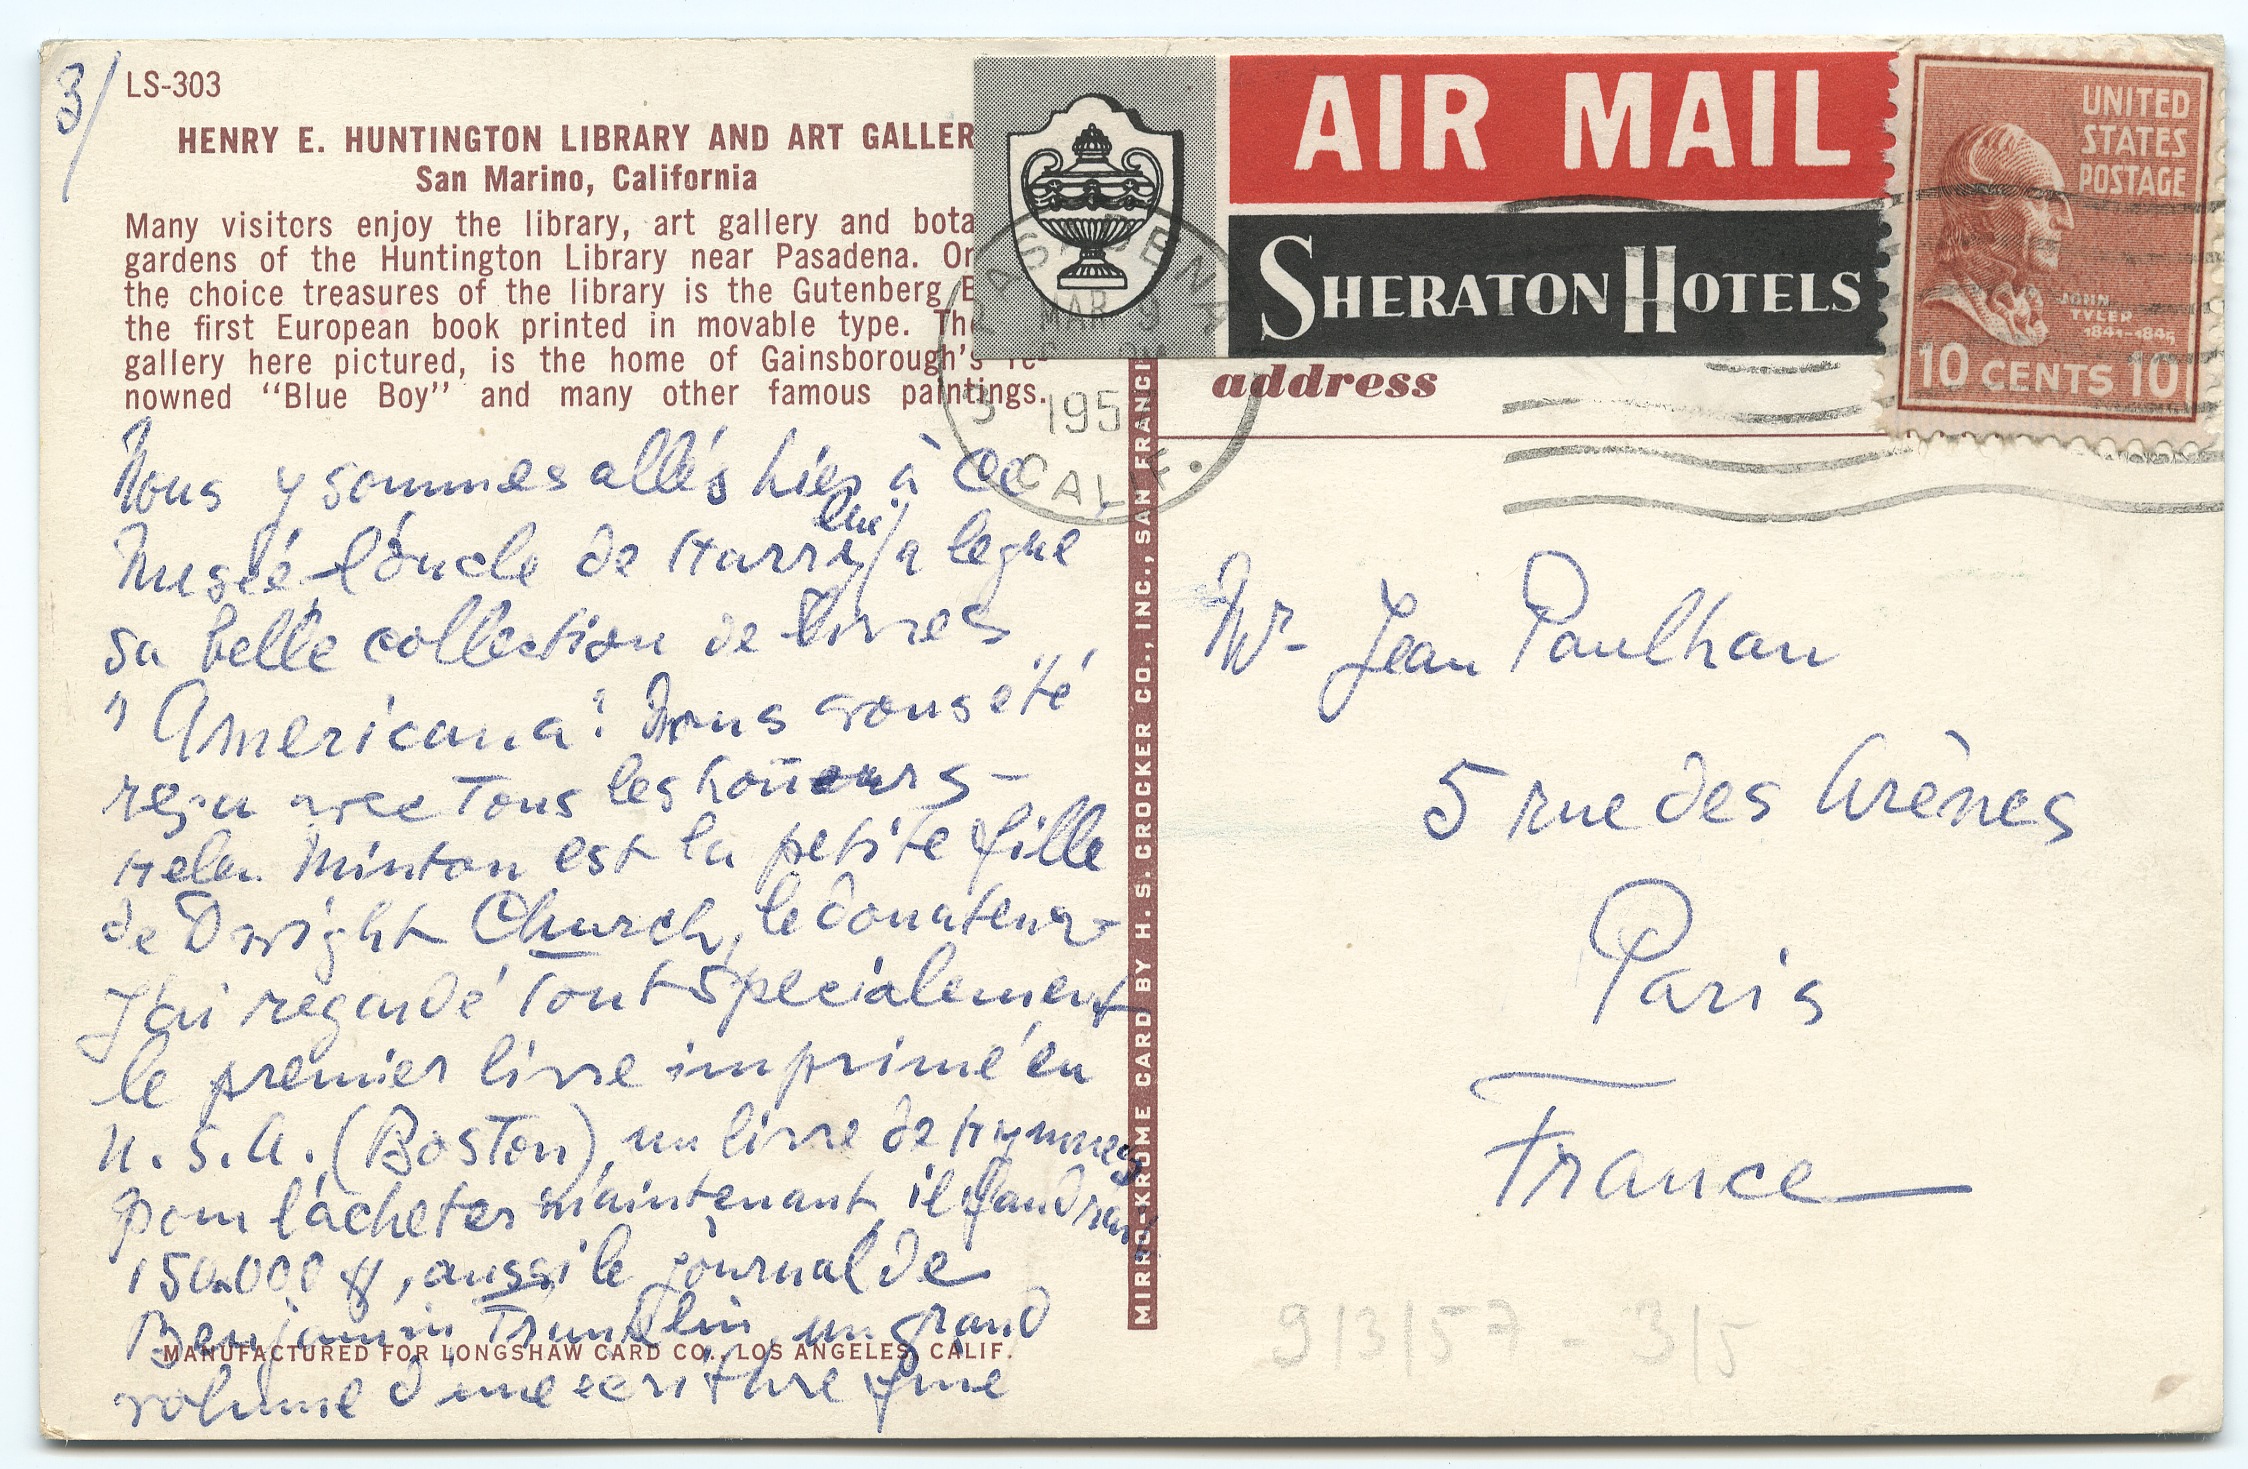 3/
LS-303
HENRY E. HUNTINGTON LIBRARY AND ART GALLER
San Marino, California
Many visitors enjoy the library, art gallery and bota
gardens of the Huntington Library near Pasadena. On
the choice treasures of the library is the Gutenberg B
the first European book printed in movable type. The
gallery here pictured, is the home of Gainsborough's re-
nowned "Blue Boy" and many other famous paintings.
Nous y sommes allés hier à ce
Musée, l'oncle de Harry lui/ a legué
sa belle collection de livres
"Americana". Nous avons été
reçu avec Tous les honneurs -
Helen Minton est la petite fille
de Dwight Church, le donateur -
J'ai regardé Tout Spécialement
le premier livre imprimé en
U.S.A. (Boston) un livre de Hymnes
pour l'acheter maintenant il faudrait
150.000 $, aussi le journal de
Benjamin Franklin, un grand
MANUFACTURED FOR LONGSHAW CARD CO., LOS ANGELES, CALIF.
volume d'une écriture fine
MIRRO-KROME CARD BY H. S. CROCKER CO., INC., SAN FRANCI
AIR MAIL
SHERATON HOTELS
PASADENA
MAR 9
195
CALIF.
UNITED
STATES
POSTAGE
JOHN
TYLER
1841-1845
10 CENTS 10
address
Mr- Jean Paulhan
5 rue des Arènes
Paris
France
9/3/57 - 3/5